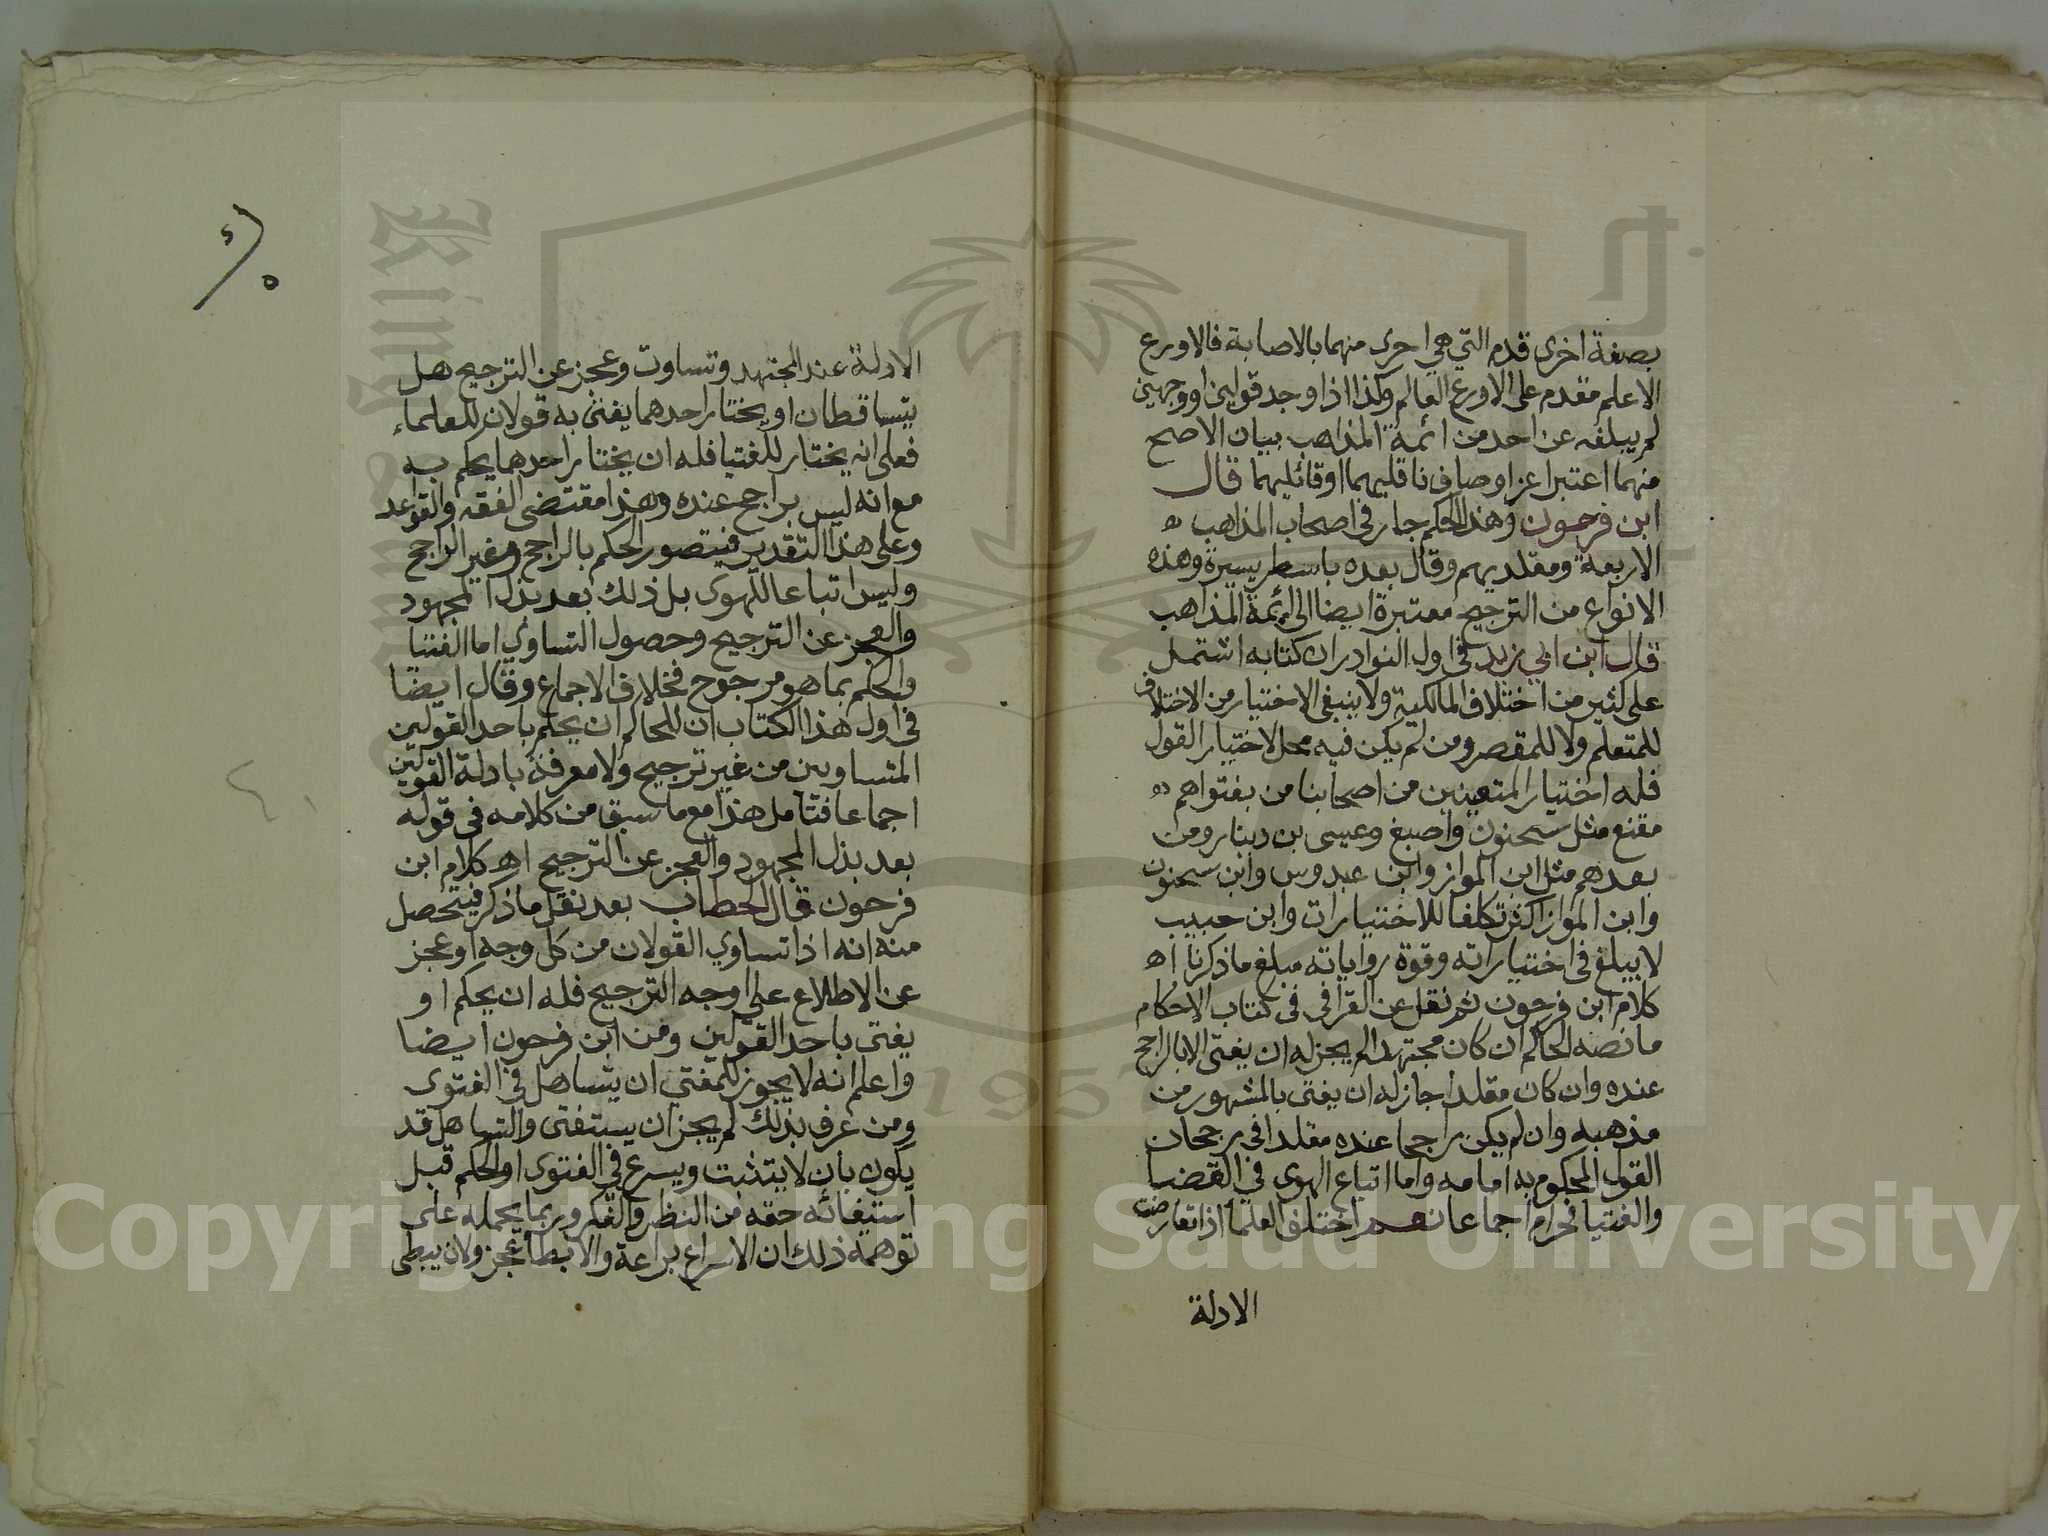 بصفة اخرى قدم التي هي احرى منهما بالاصابة فالاورع
الاعلم مقدم على الاورع العالم وكذا اذا وجد قولين او وجهين
لم يبلغه عن احد من ائمة المذاهب بيان الاصح
منهما اعتبر اوصاف ناقليهما او قائليهما قال
ابن فرحون وهذا الحكم جار في اصحاب المذاهب ه
الاربعة ومقلديهم وقال بعده باسطر يسيرة وهذه
الانواع من الترجيح معتبرة ايضا الى ائمة المذاهب
قال ابن ابي زيد في اول النوادر ان كتابه اشتمل
على كثير من اختلاف المالكية ولا ينبغي الاختيار من الاختلاف
للمتعلم ولا للمقصر ومن لم يكن فيه محل لاختيار القول
فله اختيار المتعينين من اصحابنا من بفتواهم
مقنع مثل سحنون واصبغ وعيسى بن دينار ومن
بعدهم مثل ابن المواز وابن عبدوس وابن سحنون
وابن المواز اكثر تكلفا للاختيارات وابن حبيب
لا يبلغ في اختياراته وقوة رواياته مبلغ ما ذكرنا اه
كلام ابن فرحون ثم نقل عن القرافي في كتاب الاحكام
ما نصه الحاكم ان كان مجتهدا لم يجز له ان يفتى الا بالراجح
عنده وان كان مقلدا جاز له ان يفتى بالمشهور من
مذهبه وان لم يكن راجحا عنده مقلدا في رجحان
القول المحكوم به امامه واما اتباع الهوى في القضا
والفتيا فحرام اجماعا نعم اختلف العلما اذا تعارضت
الادلة
الادلة عند المجتهد وتساوت وعجز عن الترجيح هل
يتساقطان او يختار احدهما يفتى به قولان للعلماء
فعلى انه يختار للفتيا فله ان يختار احدهما يحكم به
مع انه ليس براجح عنده وهذا مقتضى الفقه والقواعد
وعلى هذا التقدير فيتصور الحكم بالراجح وغير الراجح
وليس اتباعا للهوى بل ذلك بعد بذل المجهود
والعجز عن الترجيح وحصول التساوي اما الفتيا
والحكم بما هو مرجوح فخلاف الاجماع وقال ايضا
في اول هذا الكتاب ان للحاكم ان يحكم باحد القولين
المتساويين من غير ترجيح ولا معرفة بادلة القولين
اجماعا فتامل هذا مع ما سبق من كلامه في قوله
بعد بذل المجهود والعجز عن الترجيح اه كلام ابن
فرحون قال الحطاب بعد نقل ما ذكر فيتحصل
منه انه اذا تساوي القولان من كل وجه او عجز
عن الاطلاع على اوجه الترجيح فله ان يحكم او
يفتى باحد القولين ومن ابن فرحون ايضا
واعلم انه لا يجوز للمفتي ان يتساهل في الفتوى
ومن عرف بذلك لم يجز ان يستفتى والتساهل قد
يكون بان لا يتثبت ويسرع في الفتوى او الحكم قبل
استيفائه حقه من النظر والفكر وربما يحمله على
توهمه ذلك ان الاسراع براعة والابطا عجز ولان يبطى
Copyright © King Saud University
1957